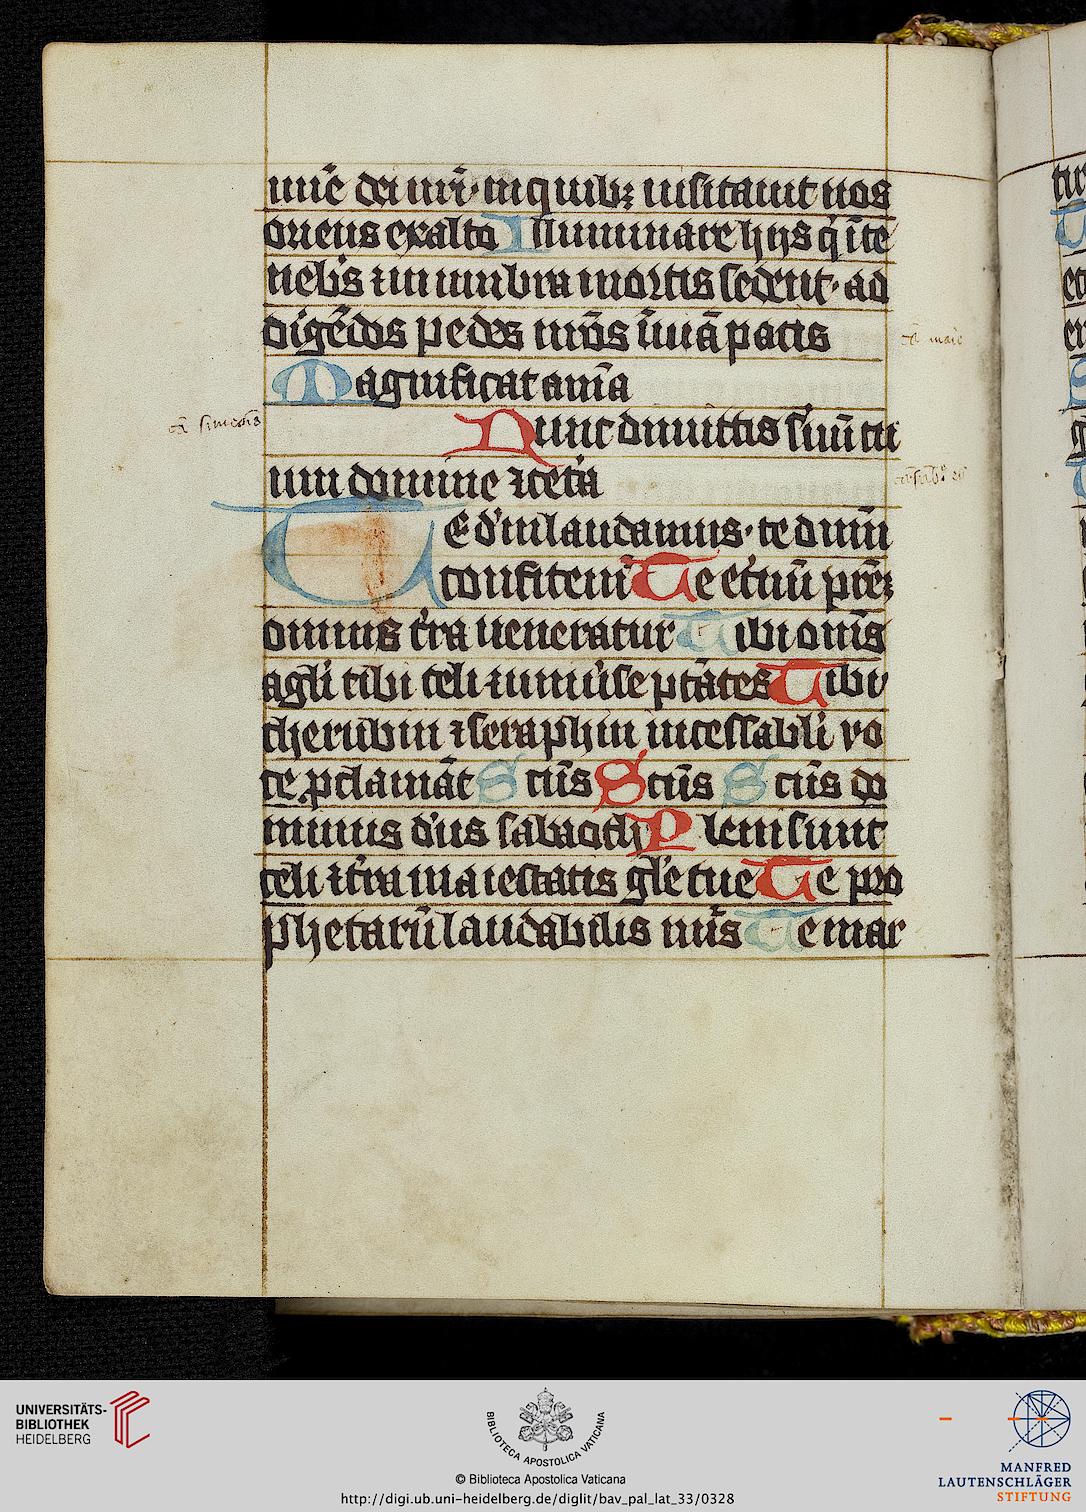 mīe dei nr̄i · in quibꝫ uisitauit nos
oriens ex alto Illuminare hijs q̇ ī te
nebˀis ⁊ in umbra mortis sedent · ad
dˀigēdos pedes nr̄os ī uiā pacis
Magnificat anīa
cā marie
cā simeōis
Nunc dimittis s̄uū tu
um domine ⁊ cetˀa
TE dˀm laudamus · te dn̄m
confitemˀ Te etˀnū prēꝫ
omnis tˀra ueneratur Tibi om̄s
āgli tibi celi ⁊ uniuˀse ptāt̄es Tibi
cherubin ⁊ seraphin incessabˀli vo
ce ꝓclamāt Sctūs Sctūs Sctūs do
minus dˀus sabaoth Pleni sunt
celi ⁊ tˀra maiestatis glˀe tue Te pro
phetarū laudabilis nūs Te mar
UNIVERSITÄTS-
BIBLIOTHEK
HEIDELBERG
BIBLIOTECA APOSTOLICA VATICANA
© Biblioteca Apostolica Vaticana
http://digi.ub.uni-heidelberg.de/diglit/bav_pal_lat_33/0328
MANFRED
LAUTENSCHLÄGER
STIFTUNG